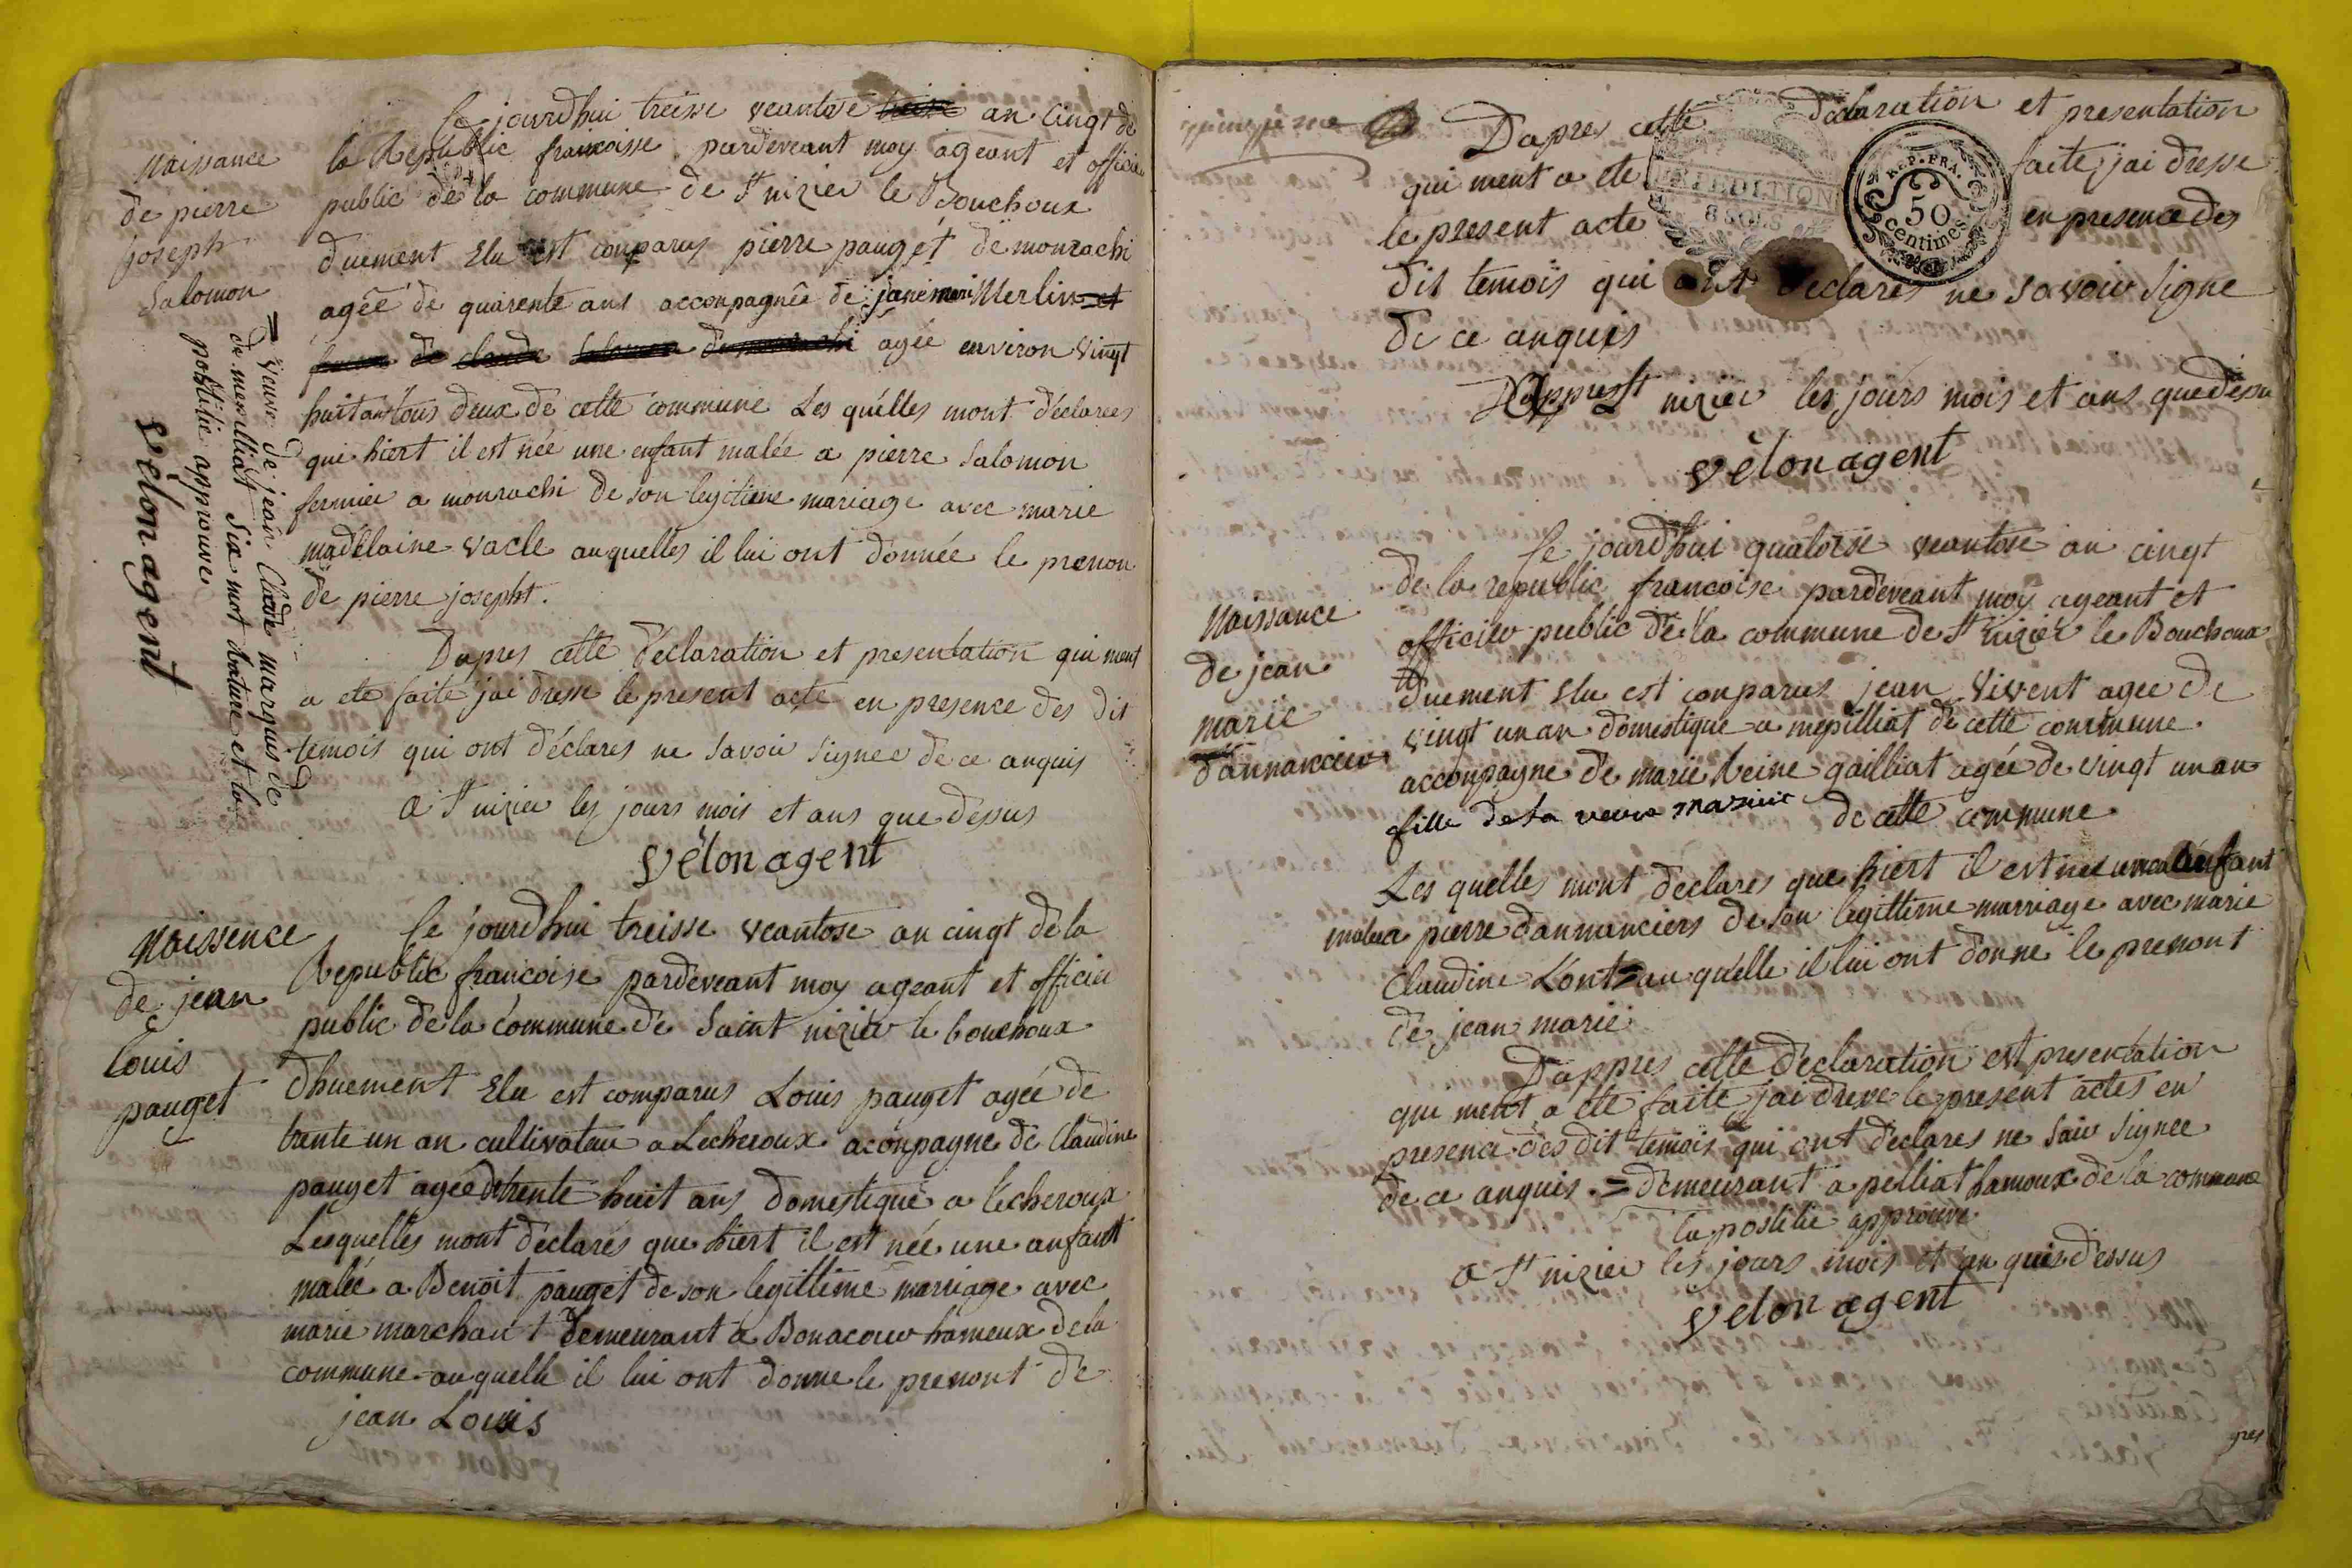 Naissance
de pierre
joseph
Salomon
Ce jourdhui treisse veantose treise an cingt de
la Republic francoisse pardeveant moy ageant et officier
public de la commune de St nizier le Bouchoux
duement Elu est conparus pierre pauget de monrachi
agée de quarente ans acconpagnée de jane mari Merlin et
femme de claude Salomon de monrachi agée environ vingt
huit ans tous deux de cette commune Les quélles mont déclarees
que hiert il est née une enfant malée a pierre Salomon
fermier a monrachi de son legitime mariage avec marie
madélaine vacle auquelles il lui ont donnée le prenon
de pierre josepht.
= veuve de jean Claude marquis de
de menilliat Six mot Rature et la
postilie approuve
vélon agent
Dapres cette déclaration et presentation qui ment
a ete faite jai dresse le present acte en presence des dit
temois qui ont déclares ne savoir signee de ce anquis
a St nizier les jours mois et ans que dessus
vélon agent
Naissence
de jean
louis
pauget
Ce jourdhui treisse veantose an cingt de la
Republic francoise pardeveant moy ageant et officier
public de la commune de Saint nizier le bouchoux
dhuement Elu est comparus Louis pauget agée de
trente un an cultivateur a Lecheroux aconpagne de Claudine
pauget agée de trente huit ans domestique a lécheroux
Lesquelles mont déclarés que hiert il est née une anfant
malée a Benoit pauget de son legittime marriage avec
marie marchant demeurant a Bonacour hameux de la
commune auquelle il lui ont donne le prenont de
jean Louis
Dapres cette déclaration et presentation
qui ment a ete faite jai dresse
le present acte en presence des
dit temois qui ont declares ne savoir signe
de ce anquis
EXPEDITION
8 SOLS
REP. FRA.
50
centimes
St nizier les jours mois et ans que dessu
vélon agent
Naissance
de jean
marie
dannancier
Ce jourdhui quatorse veantose an cingt
de la republic francoise pardeveant moy ageant et
officier public de la commune de St nizier le Bouchoux
duement Elu est conparus jean vivent agee de
vingt un an domestique a mepilliat de cette commune
acconpagne de marie Reine gailliat agée de vingt un an
fille de la veuve de cette commune
Les quelles mont déclares que hiert il est nee une enfant
malee a pierre danmanciers de son legittime marriage avec marie
Claudine Lont = au quélle il lui ont donne le prenont
de jean marie
Dappres cette déclaration est presentation
qui ment a ete faite jai dresse le present actes en
presence des dit temois qui ont declares ne saiv signee
de ce anquis. = demeurant a pelliat hamoux de la commune
la postilie approuve
a St nizier les jours mois et an que dessus
velon agent